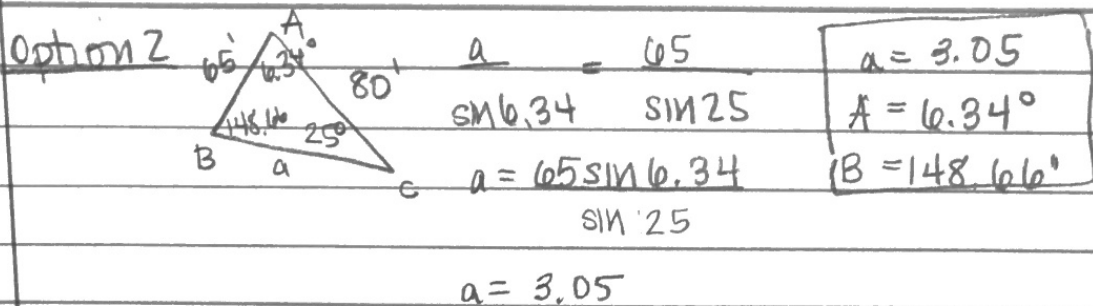 Option 2
A
65' 6.34° 80'
148.66 25°
B a C
a = 65
sin 6.34 sin 25
a = 65 sin 6.34
sin 25
a = 3.05
a = 3.05
A = 6.34°
B = 148.66°